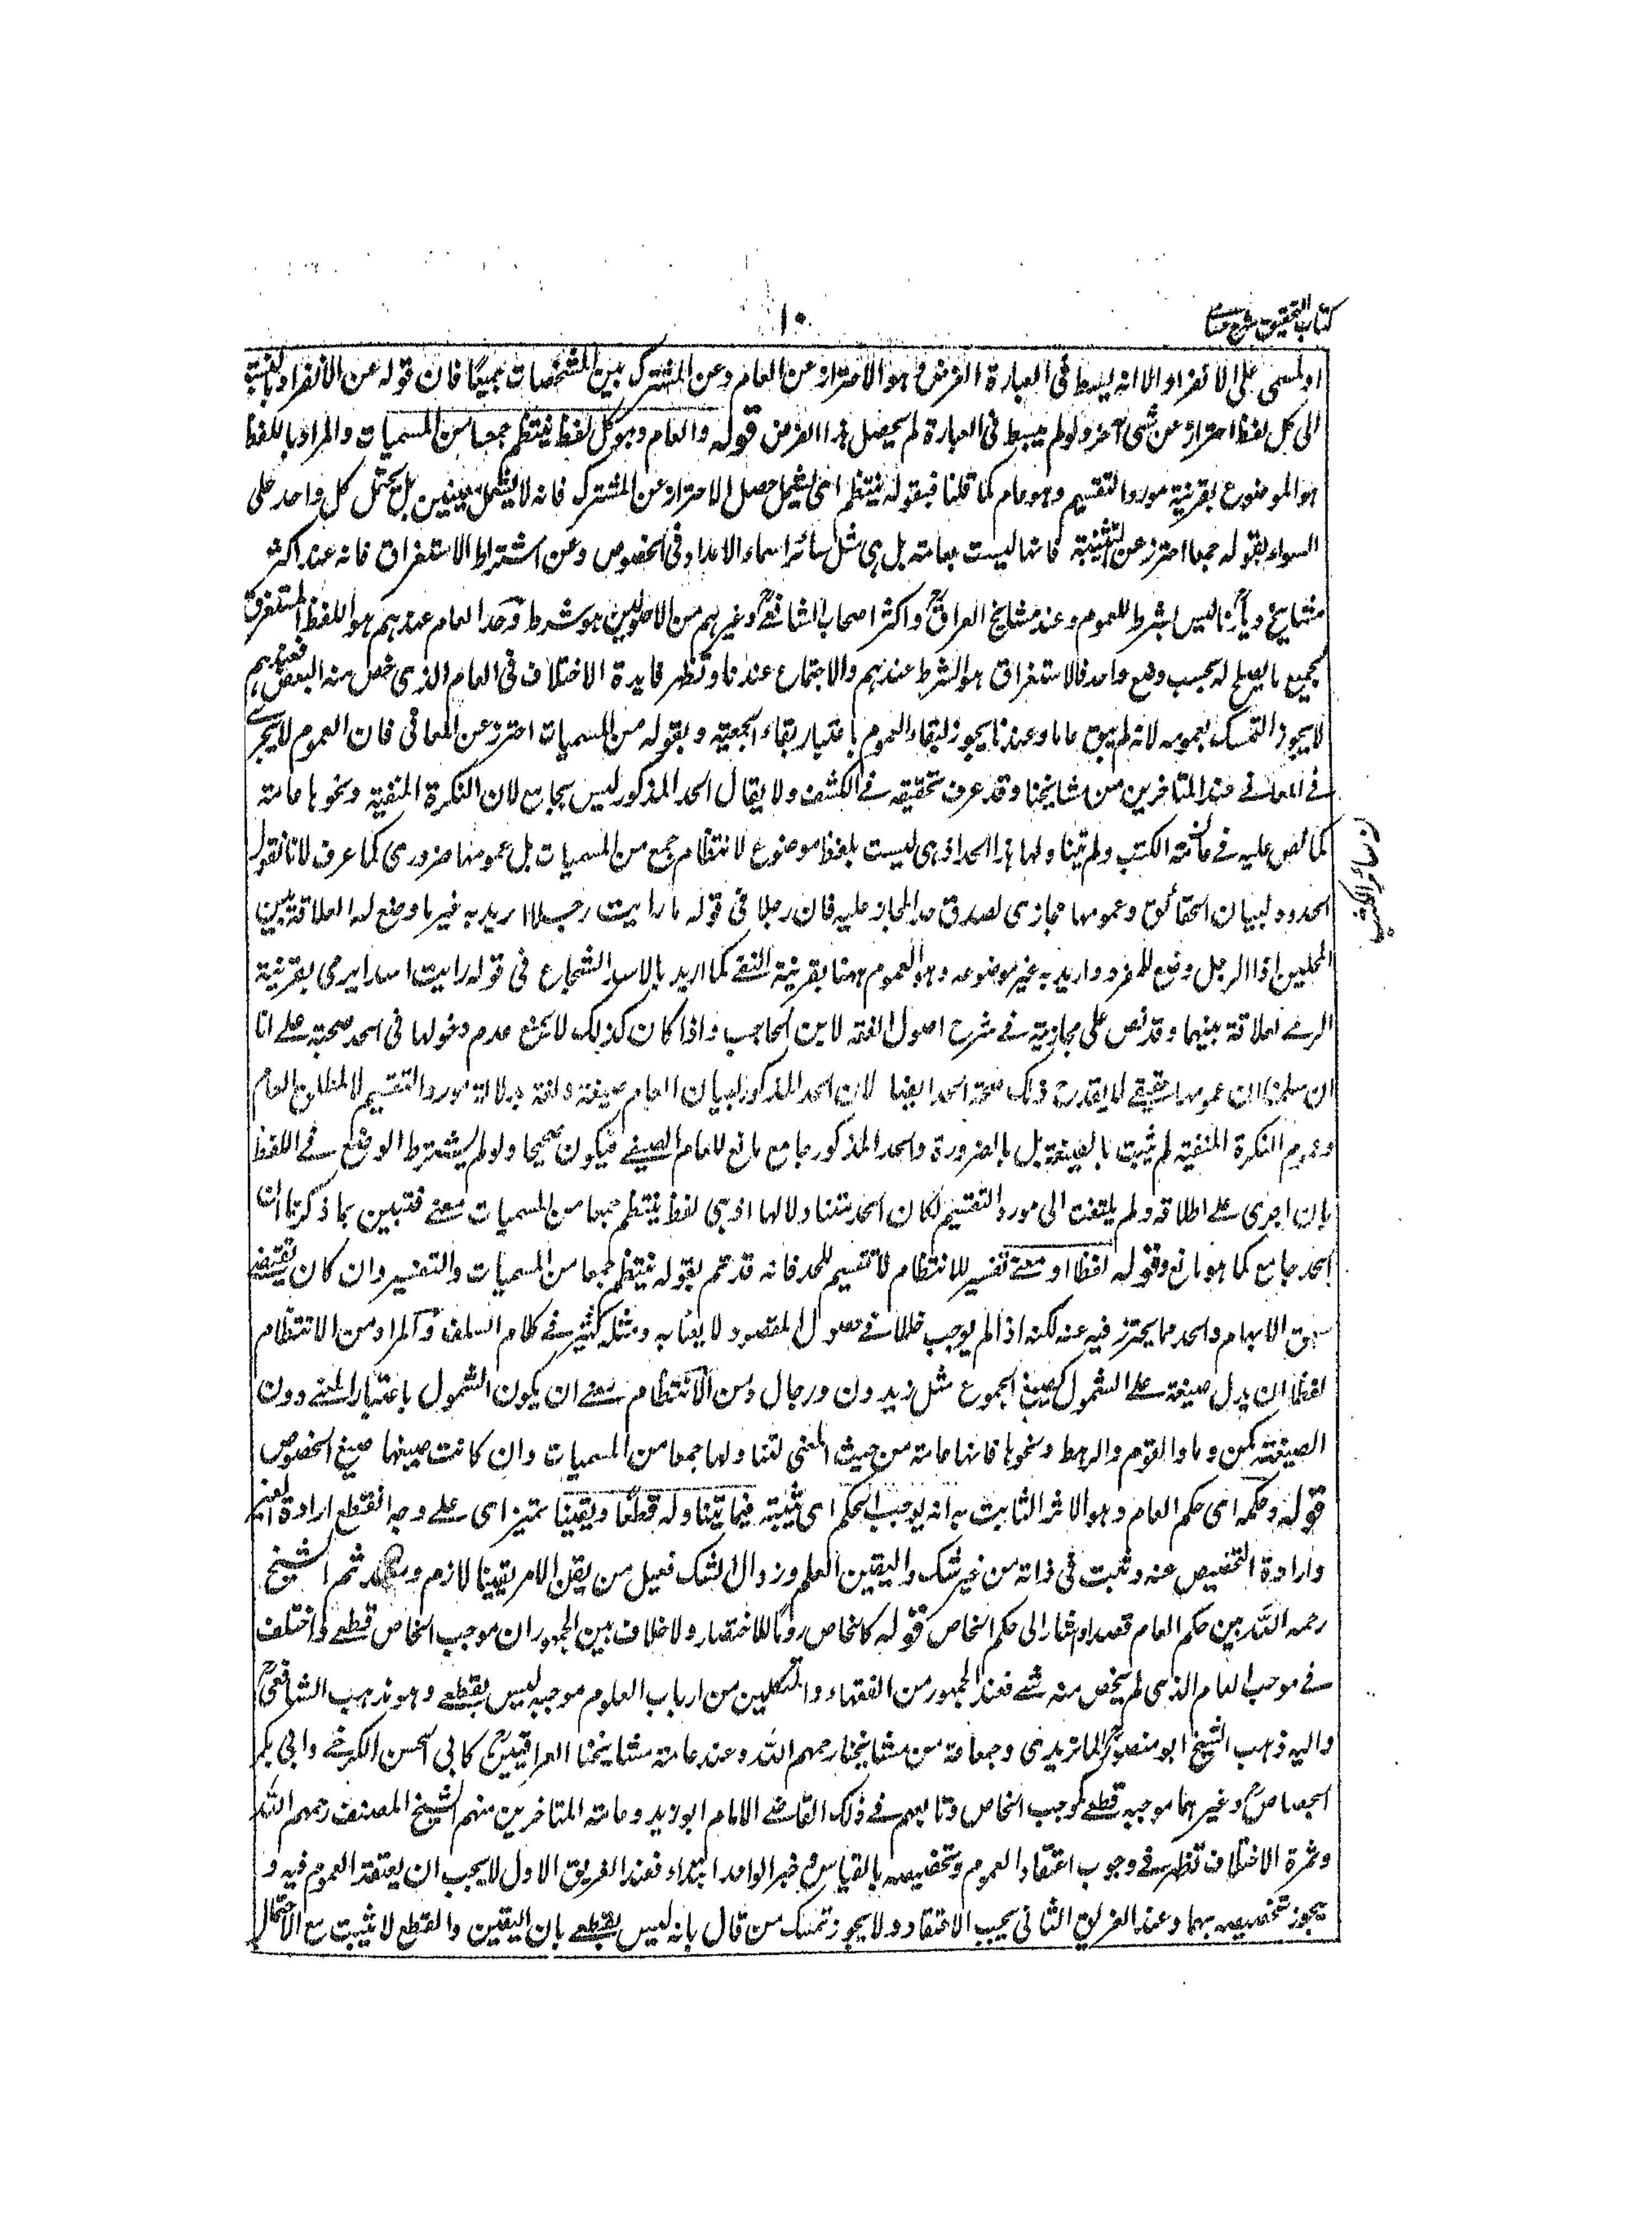 كتاب التحقيق شرح حسامى
١٠
او لمسمى على الانفراد الا انه بسط فى العبارة الغرض وهو الاحتراز عن العام وعن المشترك بين المشخصات جميعًا فان قوله عن الانفراد بالنسبة
الى كل لفظ احتراز عن شئ آخر ولو لم يبسط فى العبارة لم يحصل هذا الغرض قوله والعام وهو كل لفظ ينتظم جمعا من المسميات والمراد باللفظ
هو الموضوع بقرينة مورد التقسيم وهو عام كما قلنا فبقوله ينتظم اى يشمل حصل الاحتراز عن المشترك فانه لا يشمل معنيين بل يحتمل كل واحد على
السواء بقوله جمعا احترز عن التثنية فانها ليست بعامة بل هى مثل سائر اسماء الاعداد فى الخصوص وعن اشتراط الاستغراق فانه عند اكثر
مشايخ ديارنا ليس بشرط للعموم وعند مشايخ العراق واكثر اصحاب الشافعى وغيرهم من الاصوليين هو شرط وحد العام عندهم هو اللفظ المستغرق
لجميع ما يصلح له بحسب وضع واحد فالاستغراق هو الشرط عندهم والاجتماع عندنا وتظهر فايدة الاختلاف فى العام الذى خص منه البعض فعندهم
لا يجوز التمسك بعمومه لانه لم يبق عاما وعندنا يجوز لبقاء العموم باعتبار بقاء الجمعية وبقوله من المسميات احترز عن المعانى فان العموم لا يجرى
فى المعانى عند المتاخرين من مشايخنا وقد عرف تحقيقه فى الكشف ولا يقال الحد المذكور ليس بجامع لان النكرة المنفية ونحوها عامة
كما نص عليه فى عامة الكتب ولم يتناولها هذا الحد اذ هى ليست بلفظ موضوع لانتظام جمع من المسميات بل عمومها ضرورى كما عرف لانا نقول
الحدود لبيان الحقائق وعمومها مجازى لصدق حد المجاز عليه فان رجلا فى قوله ما رايت رجلا اريد به غير ما وضع له لعلاقة بين
المحلين اذ الرجل وضع للفرد واريد به غير موضوعه وهو العموم ههنا بقرينة النفى كما اريد بالاسد الشجاع فى قوله رايت اسدا يرمى بقرينة
الرمى لعلاقة بينهما وقد نص على مجازيته فى شرح اصول الفقه لابن الحاجب واذا كان كذلك لا يمنع عدم دخولها فى الحد صحته على انا
ان سلمنا ان عمومها حقيقى لا يقدح ذلك صحة الحد ايضا لان الحد المذكور لبيان العام صيغة ولغة بدلالة مورد التقسيم لا لمطلق العام
وعموم النكرة المنفية لم يثبت بالصيغة بل بالضرورة والحد المذكور جامع مانع للعام الصيغى فيكون صحيحا ولو لم يشترط الوضع فى اللفظ
بان اجرى على اطلاقه ولم يلتفت الى مورد التقسيم لكان الحد متناولا لها اذ هى لفظ ينتظم جمعا من المسميات معنى فتبين بما ذكرنا ان
الحد جامع كما هو مانع وقوله لفظا او معنى تفسير للانتظام لا تقسيم للحد فانه قد تم بقوله ينتظم جمعا من المسميات والتفسير وان كان يقتضى
سبق الابهام والحد مما يحترز فيه عنه لكنه اذا لم يوجب خللا فى حصول المقصود لا يعبأ به ومثله كثير فى كلام السلف والمراد من الانتظام
لفظا ان يدل صيغة على الشمول كصيغ الجموع مثل زيدون ورجال ومن الانتظام معنى ان يكون الشمول باعتبار المعنى دون
الصيغة كمن وما والقوم والرهط ونحوها فانها عامة من حيث المعنى لتناولها جمعا من المسميات وان كانت صيغها صيغ الخصوص
قوله وحكمه اى حكم العام وهو الاثر الثابت به انه يوجب الحكم اى يثبته فيما يتناوله قطعًا ويقينًا تمييز اى على وجه انقطع ارادة الغير
وارادة التخصيص عنه وثبت فى ذاته من غير شك واليقين العلم وزوال الشك فعيل من يقن الامر يقينا لازم ومتعد ثم الشيخ
رحمه الله بين حكم العام قصدا واشار الى حكم الخاص قوله كالخاص روما للاختصار ولا خلاف بين الجمهور ان موجب الخاص قطعى واختلف
فى موجب العام الذى لم يخص منه شئ فعند الجمهور من الفقهاء والمتكلمين من ارباب العلوم موجبه ليس بقطعى وهو مذهب الشافعى
واليه ذهب الشيخ ابو منصور الماتريدى وجماعة من مشايخنا رحمهم الله وعند عامة مشايخنا العراقيين كابى الحسن الكرخى وابى بكر
الجصاص وغيرهما موجبه قطعى كموجب الخاص وتابعهم فى ذلك القاضى الامام ابو زيد وعامة المتاخرين منهم الشيخ المصنف رحمهم الله
وثمرة الاختلاف تظهر فى وجوب اعتقاد العموم وتخصيصه بالقياس وخبر الواحد ابتداء فعند الفريق الاول لا يجب ان يعتقد العموم فيه و
يجوز تخصيصه بهما وعند الفريق الثانى يجب الاعتقاد ولا يجوز تمسك من قال بانه ليس بقطعى بان اليقين والقطع لا يثبت مع الاحتمال